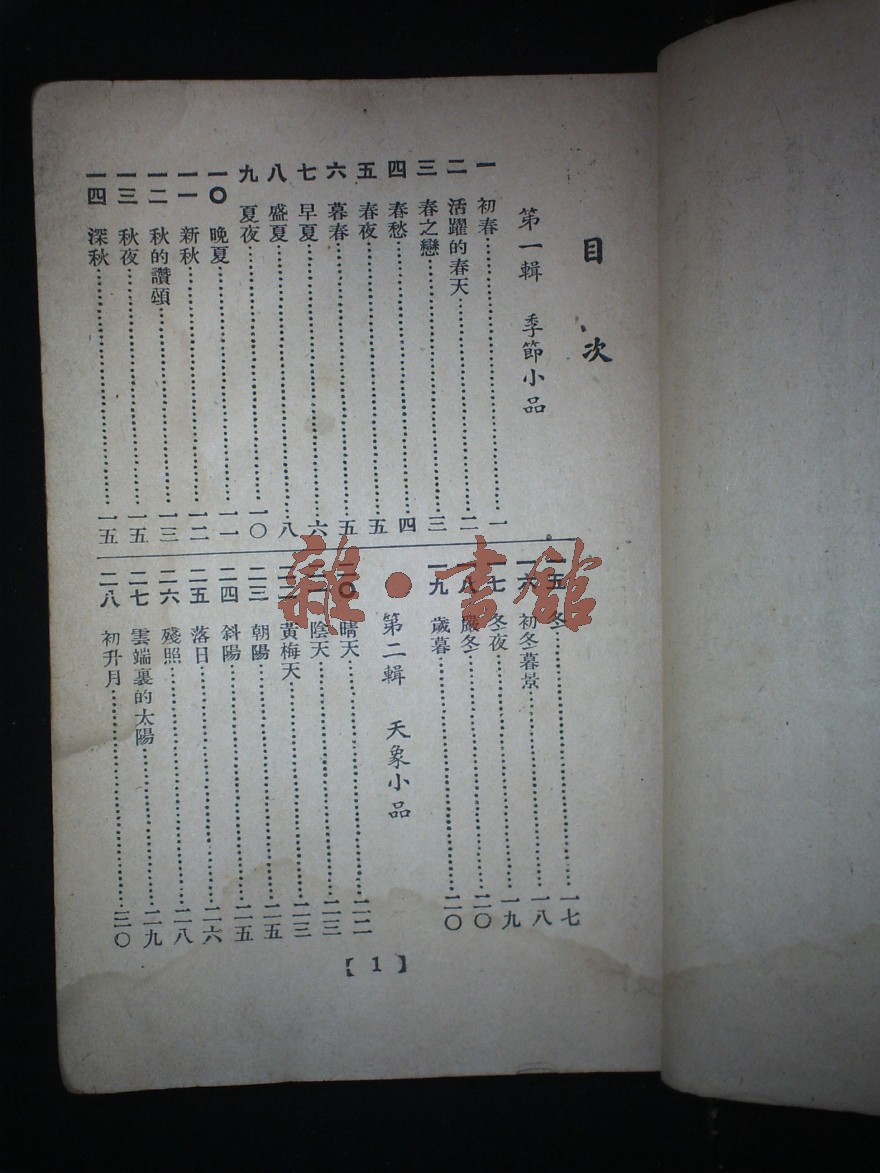 目次
第一輯 季節小品
一 初春……一
二 活躍的春天……二
三 春之戀……三
四 春愁……四
五 春夜……五
六 暮春……五
七 早夏……六
八 盛夏……八
九 夏夜……一〇
一〇 晚夏……一一
一一 新秋……一二
一二 秋的讚頌……一三
一三 秋夜……一五
一四 深秋……一五
一五 冬……一七
一六 初冬暮景……一八
一七 冬夜……一九
一八 嚴冬……二〇
一九 歲暮……二〇
第二輯 天象小品
二〇 晴天……二二
二一 陰天……二三
二二 黃梅天……二三
二三 朝陽……二五
二四 斜陽……二五
二五 落日……二六
二六 殘照……二八
二七 雲端裏的太陽……二九
二八 初升月……三〇
【1】
雜·書館